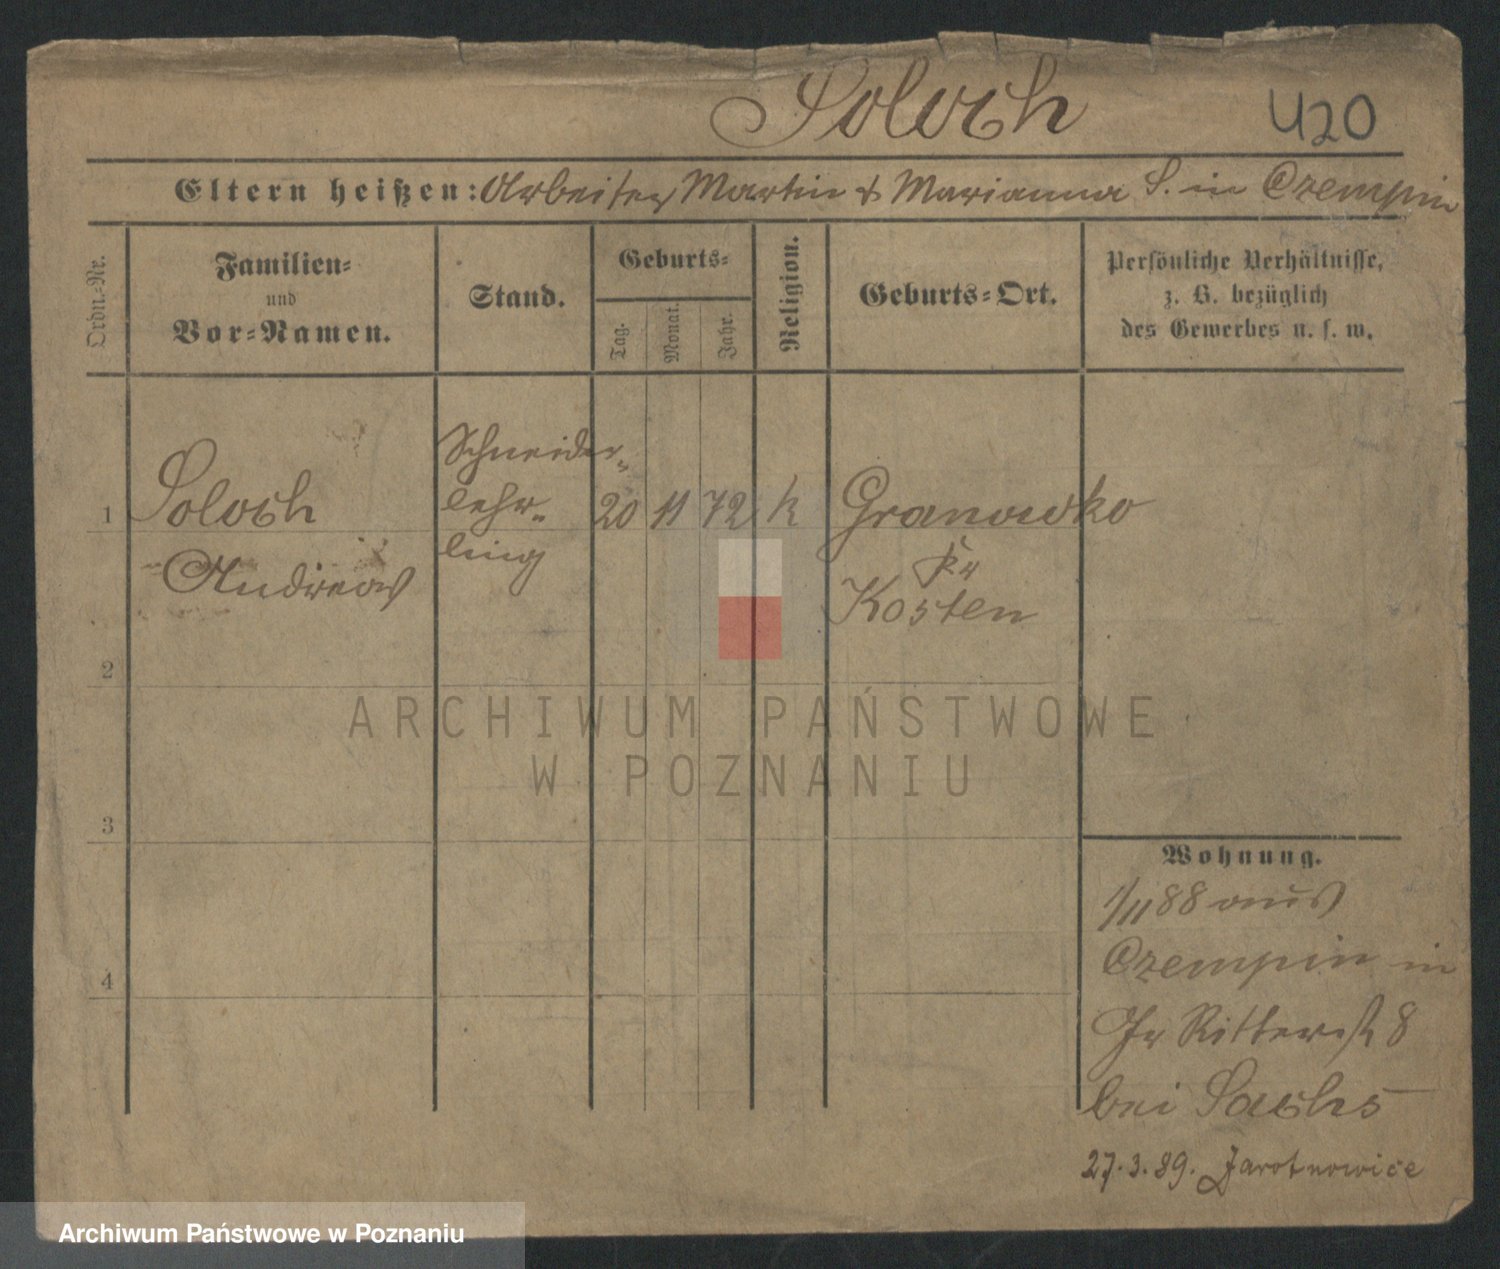 Soloch
420
Eltern heißen: Arbeiter Martin & Marianna S. in Czempin
Ordn.-Nr.
Familien-
und
Vor-Namen.
Stand.
Geburts-
Tag.
Monat.
Jahr.
Religion.
Geburts-Ort.
Persönliche Verhältnisse,
z. B. bezüglich
des Gewerbes u. s. w.
1
Soloch
Andreas
Schneider-
lehr-
ling
20
11
72
k
Granowko
Kr
Kosten
2
3
4
Wohnung.
1/11 88 aus
Czempin in
Ritterst 8
bei Sachs
27.3.89. Jarotnowice
ARCHIWUM PAŃSTWOWE
W POZNANIU
Archiwum Państwowe w Poznaniu